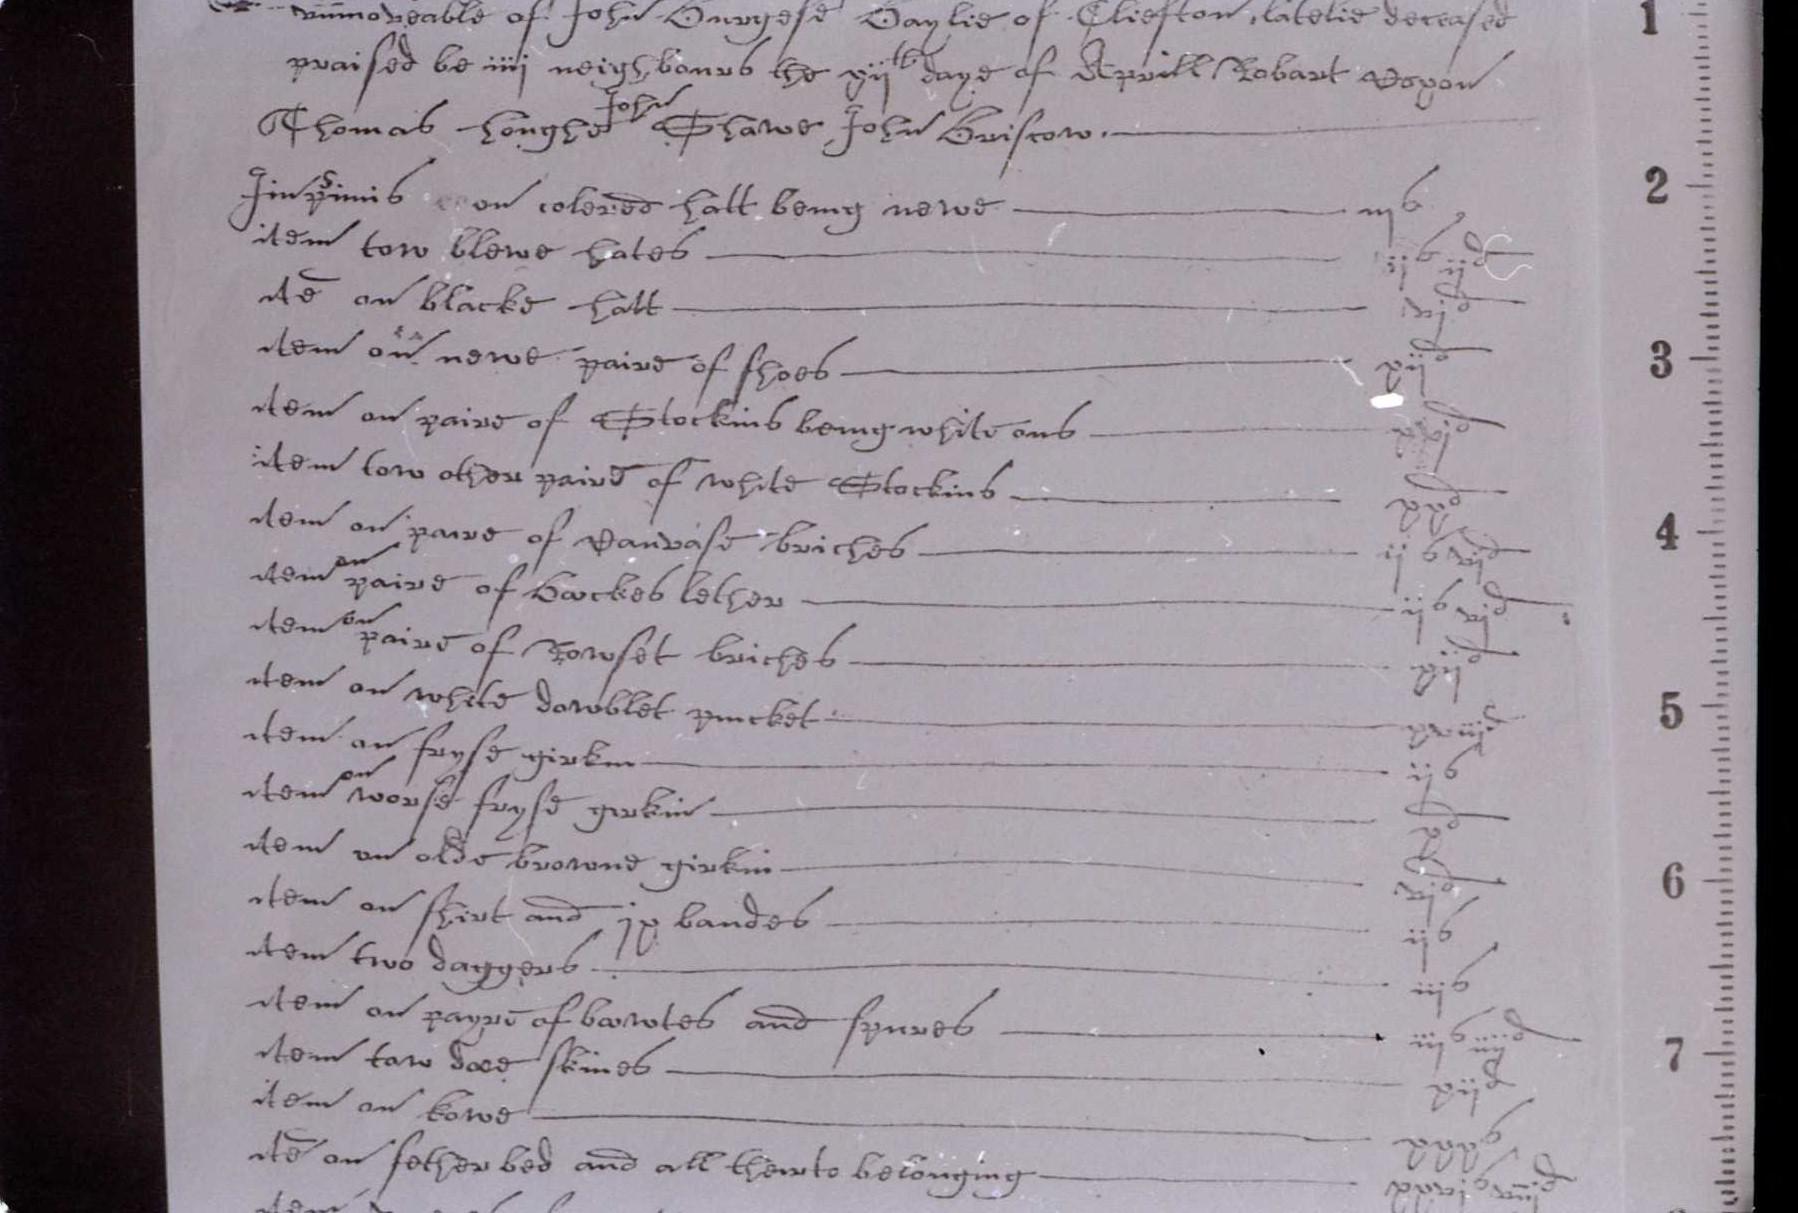 vnmoveable of John Burgese Baylie of Cliefton latelie deceased
praised be iiij neighbours the xijth daye of Aprill Robart Coxon
Thomas houghe John Shawe John Briscow
Inprimis on colered hatt being newe iijs
item tow blewe hates ijs ijd
itē on blacke hatt vjd
item on newe paire of shoes xijd
item on paire of Stockins being white ons xvjd
item tow other paire of white Stockins xxd
item on paire of Canvase briches ijs vjd
item on paire of Buckes lether ijs vjd
item on paire of Rowset briches xijd
item on white dowblet pincket xviijd
item on fryse girkin ijs
item on worse fryse girkin xd
item on olde browne girkin vjd
item on shirt and ix bandes ijs
item two daggers iijs
item on payre of bowtes and spures iijs iiijd
item tow doe skines xijd
item on kowe xxxs
itē on fether bed and all therto belonging xxvjs viijd
1
2
3
4
5
6
7